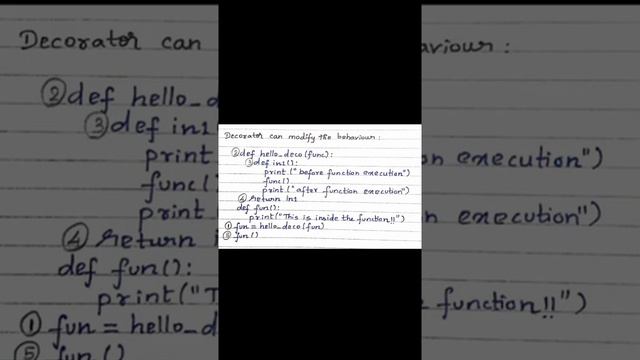 Decorator can modify the behaviour :
②def hello_deco(func):
③def in1():
print("before function execution")
func()
print("after function execution")
④return in1
def fun():
print("This is inside the function!!")
①fun = hello_deco(fun)
⑤fun()